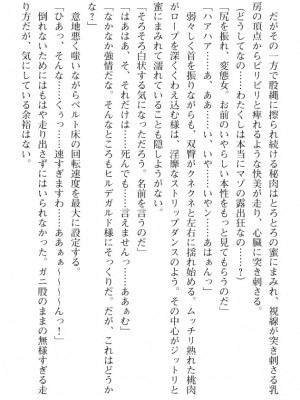 だがその一方で股縄に擦られ続ける秘肉はとろとろの蜜にまみれ、視線が突き刺さる乳
房の頂点からビリビリと痺れるような快美が走り、心臓に突き刺さる。
(どうしてなの……わたくしは本当にマゾの露出狂なの……?)
「尻を振れ、変態女。お前のいやらしい本性をもっと見てもらうのだ」
「ハアハア……あ、ああ……ぞ、そんな……いや……いやン……あはぁんっ」
弱々しく首を振りながらも、双臀がクネクネと左右に揺れ始める。ムッチリ熟れた桃肉
がロープを深くくわえ込む様は、淫靡なストリップダンスのよう。その中心がジットリと
蜜にまみれて濡れていることも隠しようがない。
「そろそろ白状する気になっただろう。名前を言うのだ」
「はあはあ、そ、それだけは……死んでも……言えませんっ……ああぁむ」
「なかなか強情だな。そんなところもヒルデガルド様にそっくりだ。だが、これはどうか
な?」
意地悪く嗤いながらベルト床の回転速度を最大に設定する。
「ひあっ、そんな……くっ……速すぎますわ……ああぁぁ〜〜〜〜んっ!」
倒れないためにはもはや走り出さずにはいられなかった。ガニ股のままの無様すぎる走
り方だが、気にしている余裕はない。